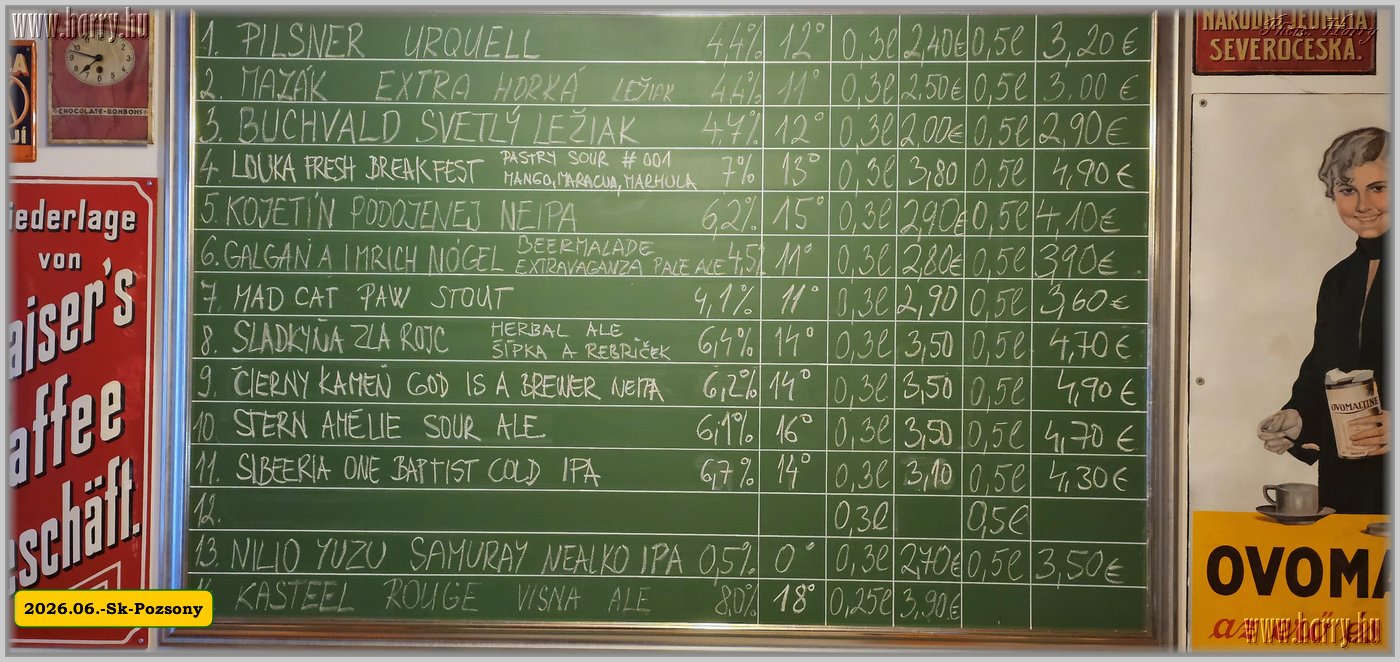 www.horry.hu
CHOCOLATE-BONBONS
1. PILSNER URQUELL 4,4% 12° 0,3l 2,40€ 0,5l 3,20 €
2. MAZÁK EXTRA HORKÁ LEŽIAK 4,4% 11° 0,3l 2,50€ 0,5l 3,00 €
3. BUCHVALD SVETLÝ LEŽIAK 4,7% 12° 0,3l 2,00€ 0,5l 2,90€
4. LOUKA FRESH BREAKFEST PASTRY SOUR #001 7% 13° 0,3l 3,80 0,5l 4,90 €
MANGO, MARACUA, MARHULA
5. KOJETÍN PODOJENEJ NEIPA 6,2% 15° 0,3l 2,90€ 0,5l 4,10€
6. GALGAN A IMRICH NÓGEL BEERMALADE 4,5% 11° 0,3l 2,80€ 0,5l 3,90€
EXTRAVAGANZA PALE ALE
7. MAD CAT PAW STOUT 4,1% 11° 0,3l 2,90 0,5l 3,60€
8. SLADKYŇA ZLA ROJC HERBAL ALE 6,4% 14° 0,3l 3,50 0,5l 4,70 €
ŠÍPKA A REBRÍČEK
9. ČIERNY KAMEŇ GOD IS A BREWER NEIPA 6,2% 14° 0,3l 3,50 0,5l 4,90€
10. STERN AMÉLIE SOUR ALE 6,1% 16° 0,3l 3,50 0,5l 4,70 €
11. SIBEERIA ONE BAPTIST COLD IPA 6,7% 14° 0,3l 3,10 0,5l 4,30€
12. 0,3l 0,5l
13. NILIO YUZU SAMURAY NEALKO IPA 0,5% 0° 0,3l 2,70€ 0,5l 3,50€
KASTEEL ROUGE VISNA ALE 8,0% 18° 0,25l 3,90€
iederlage
von
aiser's
affee
eschäft.
2026.06.-Sk-Pozsony
NÁRODNÍ JEDNOTA
SEVEROČESKÁ.
Photo: Horry
OVOMALTINE
OVOMA
az erő és
www.horry.hu